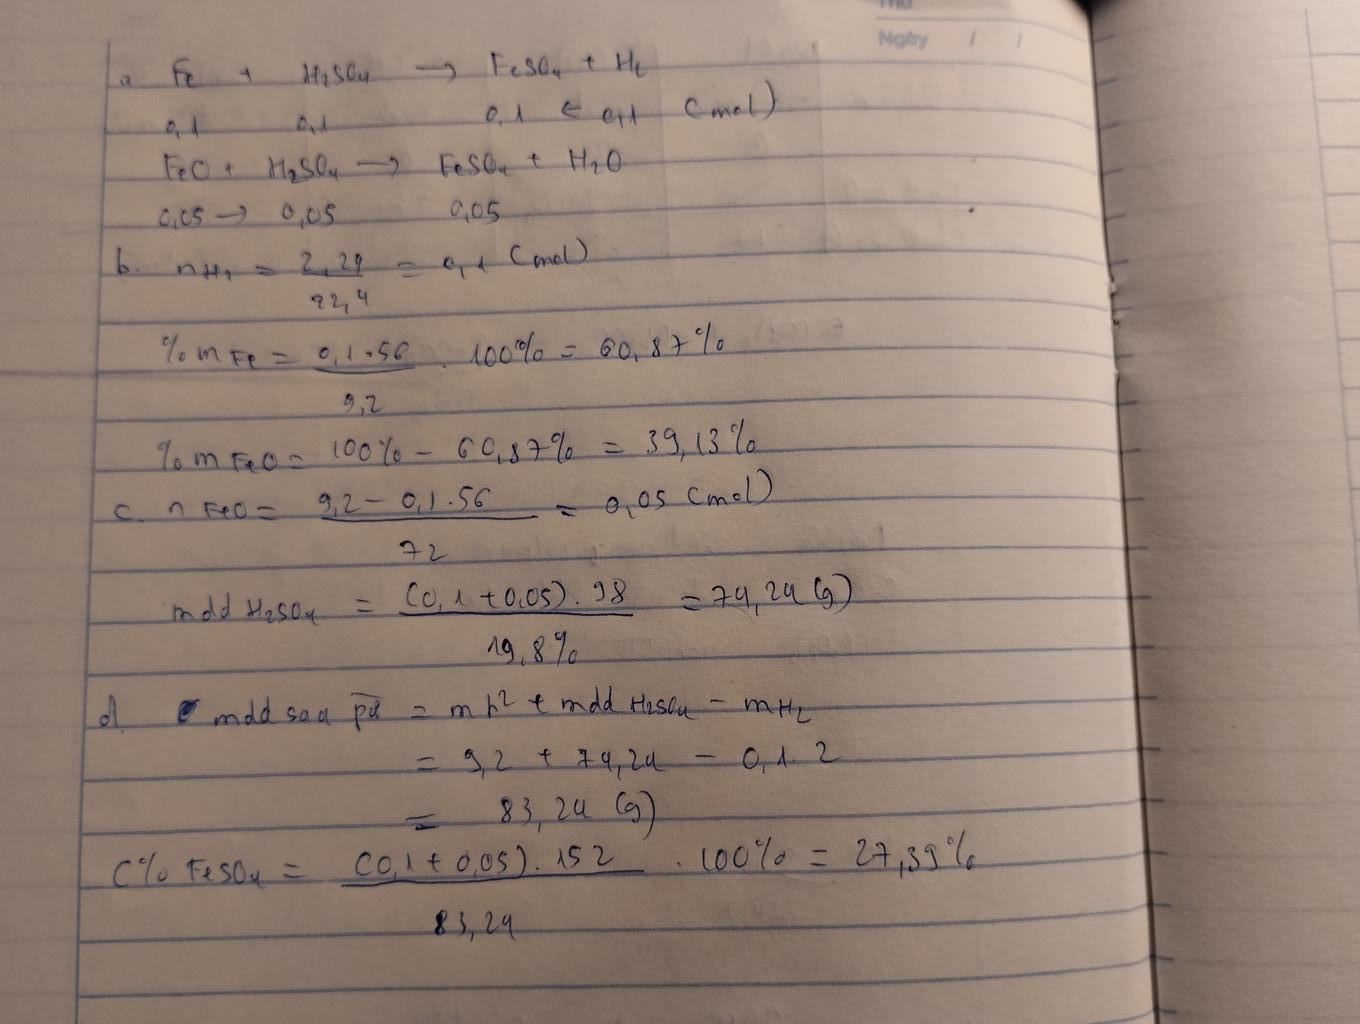 Thứ
Ngày / /
a Fe + H2SO4 → FeSO4 + H2
0,1 0,1 0,1 ← 0,1 (mol)
FeO + H2SO4 → FeSO4 + H2O
0,05 → 0,05 0,05
b. nH2 = 2,24 = 0,1 (mol)
22,4
%mFe = 0,1.56 . 100% = 60,87%
9,2
%mFeO = 100% - 60,87% = 39,13%
c. nFeO = 9,2 - 0,1.56 = 0,05 (mol)
72
mdd H2SO4 = (0,1 + 0,05). 98 = 74,24 (g)
19,8%
d. mdd sau pứ = mh2 + mdd H2SO4 - mH2
= 9,2 + 74,24 - 0,1. 2
= 83,24 (g)
C% FeSO4 = (0,1 + 0,05). 152 . 100% = 27,39%
83,24